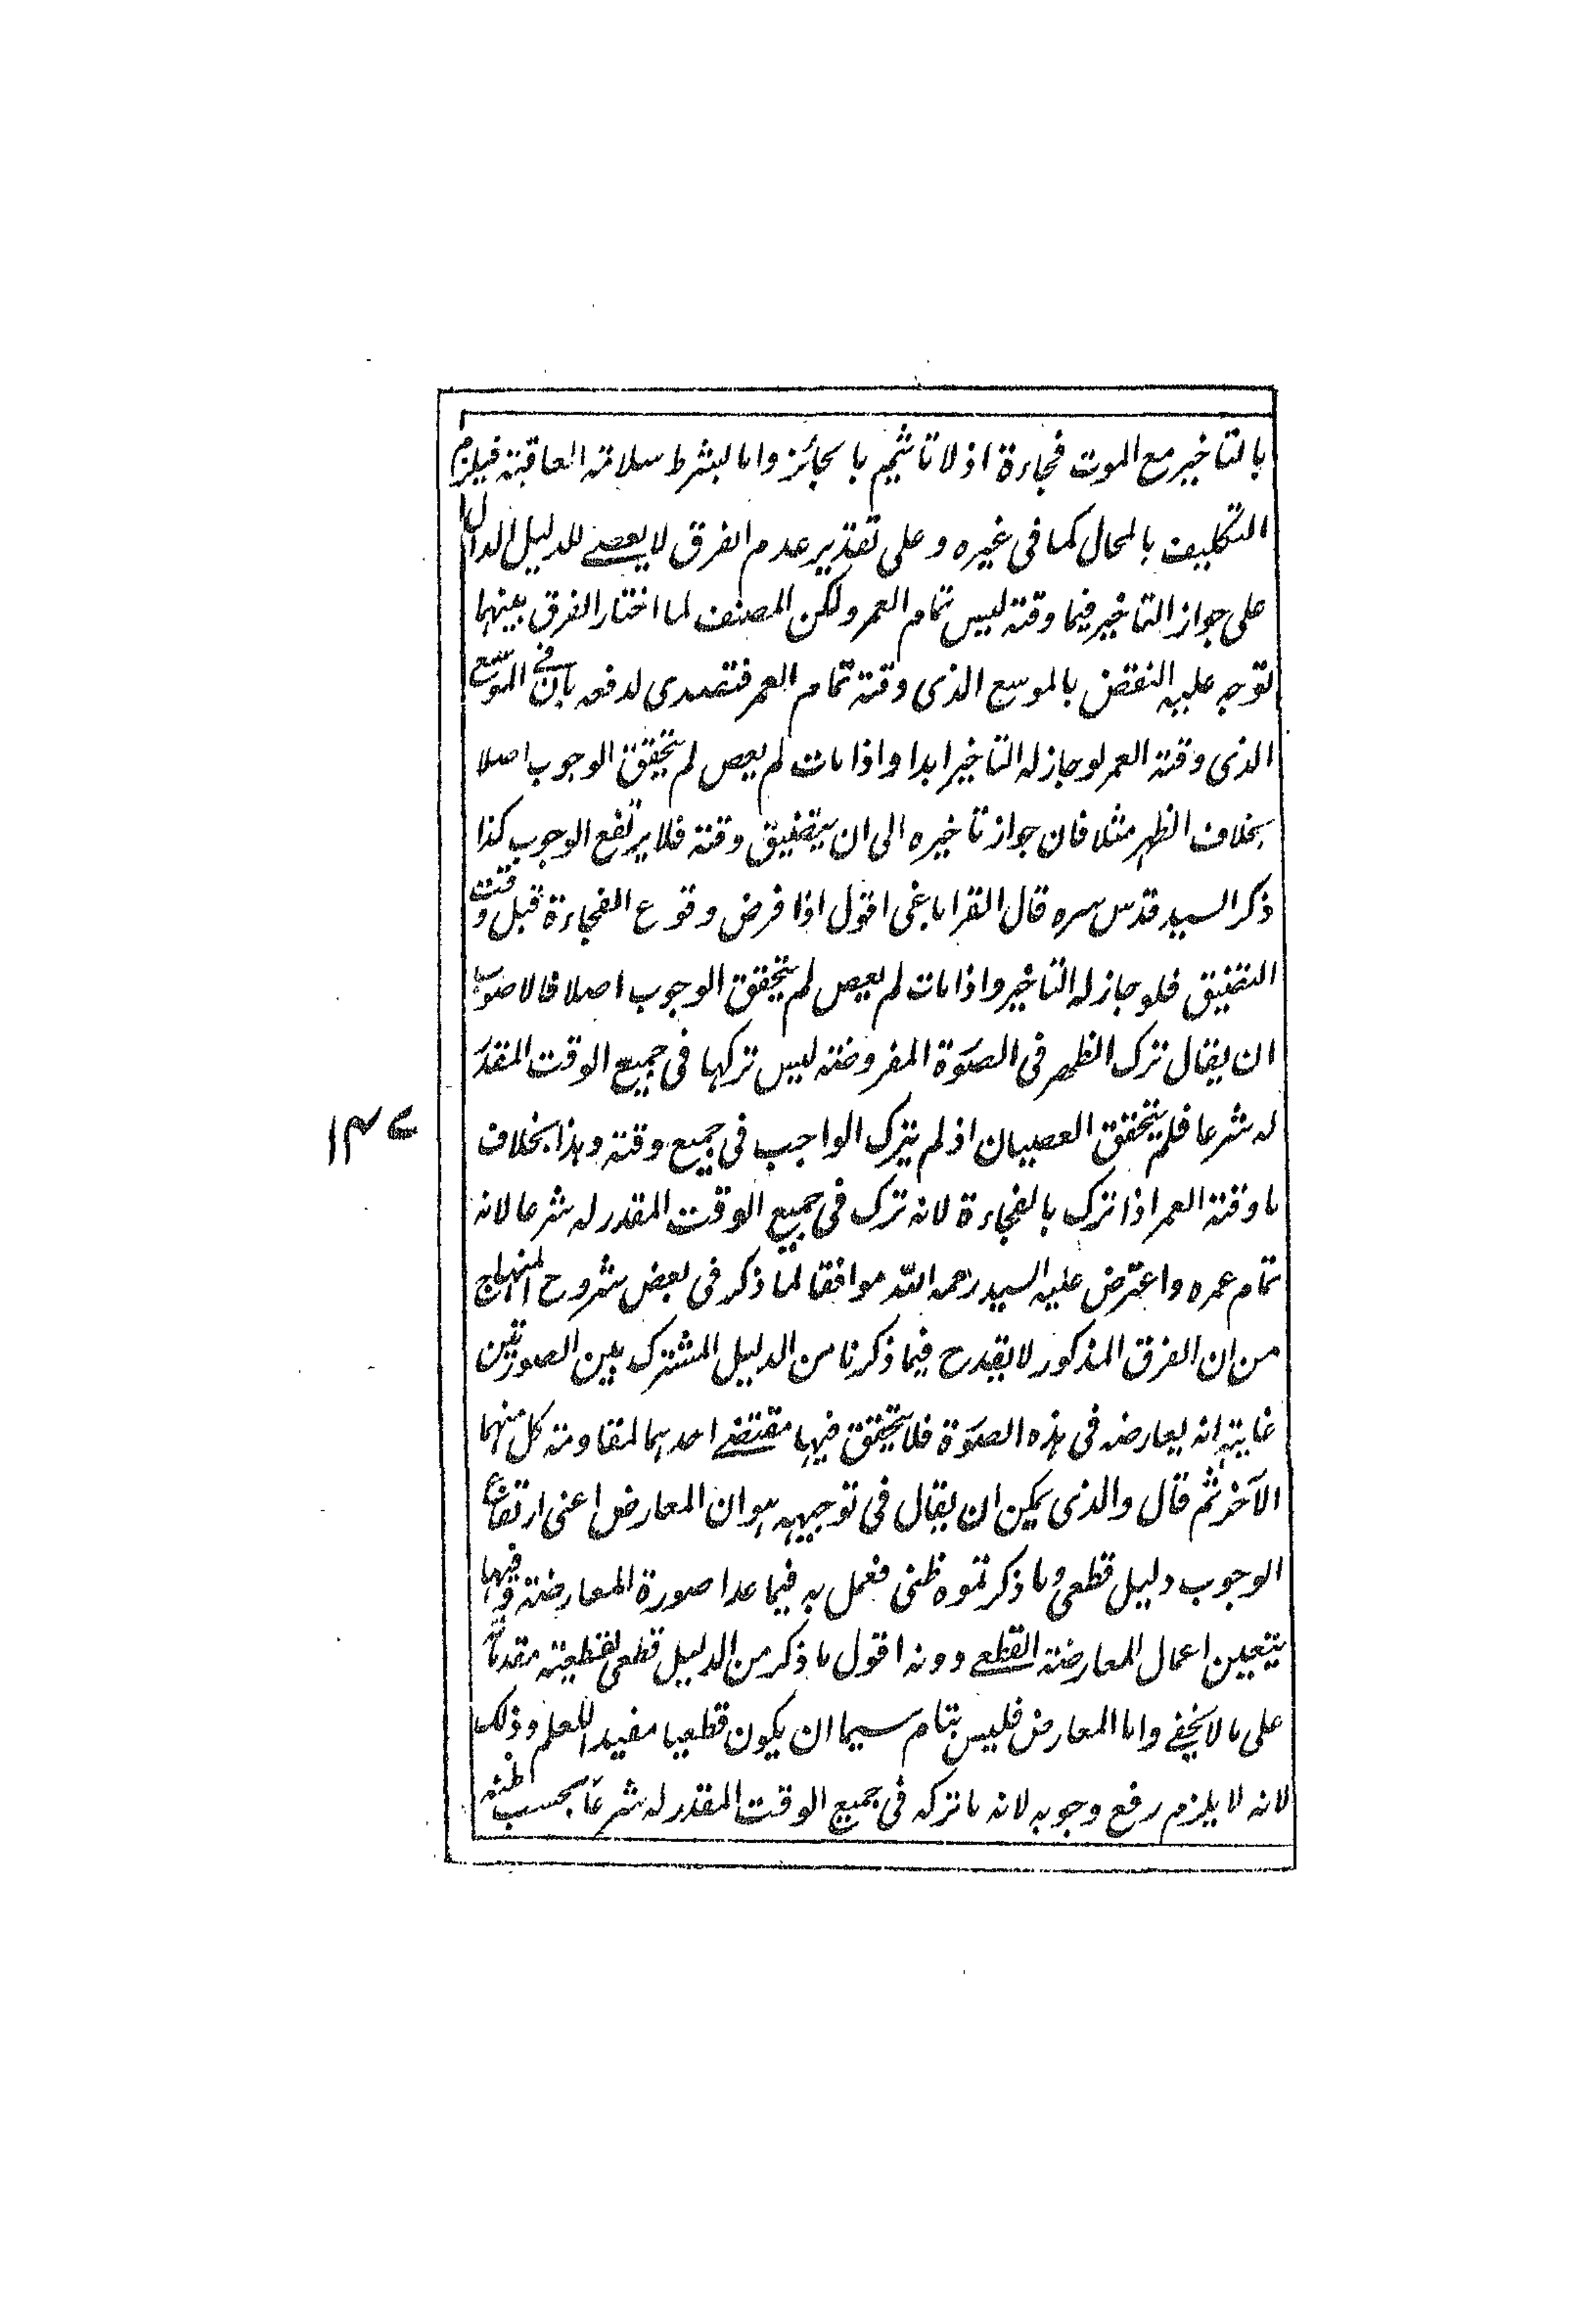 بالتاخير مع الموت فجاءة اذ لا تاثيم بالجائز واما بشرط سلامة العاقبة فيلزم
التكليف بالمحال كما فى غيره وعلى تقدير عدم الفرق لا يعصے للدليل الدال
على جواز التاخير فيما وقته ليس تمام العمر ولكن المصنف لما اختار الفرق بينهما
توجه عليه النقض بالموسع الذى وقته تمام العمر فتصدى لدفعه بان فى الموسع
الذى وقته العمر لو جاز له التاخير ابدا واذا مات لم يعص لم يتحقق الوجوب اصلا
بخلاف الظهر مثلا فان جواز تاخيره الى ان يتضيق وقته فلا يرتفع الوجوب كذا
ذكر السيد قدس سره قال القراباغى اقول اذا فرض وقوع الفجاءة قبل وقت
التضيق فلو جاز له التاخير واذا مات لم يعص لم يتحقق الوجوب اصلا فالاصوب
ان يقال ترك الظهر فى الصورة المفروضة ليس تركها فى جميع الوقت المقدر
له شرعا فلم يتحقق العصيان اذ لم يترك الواجب فى جميع وقته وهذا بخلاف
ما وقته العمر اذا ترك بالفجاءة لانه ترك فى جميع الوقت المقدر له شرعا لانه
تمام عمره واعترض عليه السيد رحمه الله موافقا لما ذكر فى بعض شروح المنهاج
من ان الفرق المذكور لا يقدح فيما ذكرنا من الدليل المشترك بين الصورتين
غايته انه يعارضه فى هذه الصورة فلا يتحقق فيها مقتضے احدهما لمقاومة كل منهما
الآخر ثم قال والذى يمكن ان يقال فى توجيهه هو ان المعارض اعنى ارتفاع
الوجوب دليل قطعى وما ذكرتموه ظنى فعمل به فيما عدا صورة المعارضة وفيها
يتعين اعمال المعارضة القطعے دونه اقول ما ذكر من الدليل قطعى لقطعية مقدماته
على ما لا يخفے واما المعارض فليس بتام سيما ان يكون قطعيا مفيدا للعلم وذلك
لانه لا يلزم رفع وجوبه لانه ما تركه فى جميع الوقت المقدر له شرعا بحسب ظنه